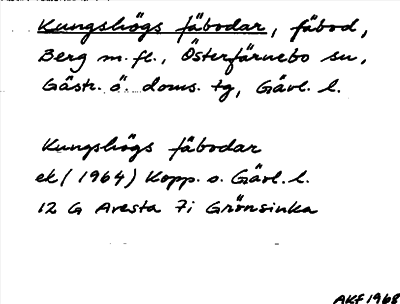 Kungshögs fäbodar, fäbod,
Berg m.fl., Österfärnebo sn,
Gästr. ö. doms. tg, Gävl. l.
Kungshögs fäbodar
ek (1964) Kopp. o. Gävl. l.
12 G Avesta 7i Grönsinka
AKF 1968